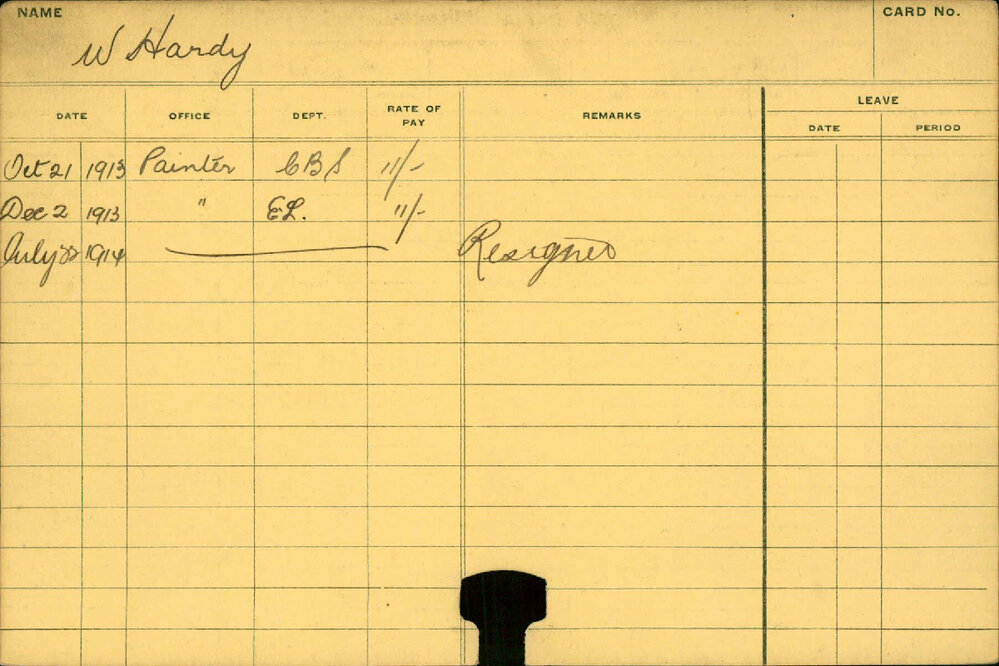 NAME
CARD No.
W Hardy
DATE OFFICE DEPT. RATE OF PAY REMARKS LEAVE
DATE PERIOD
Oct 21 1913 Painter CBS 11/-
Dec 2 1913 " EL. 11/-
July 1914 Resigned